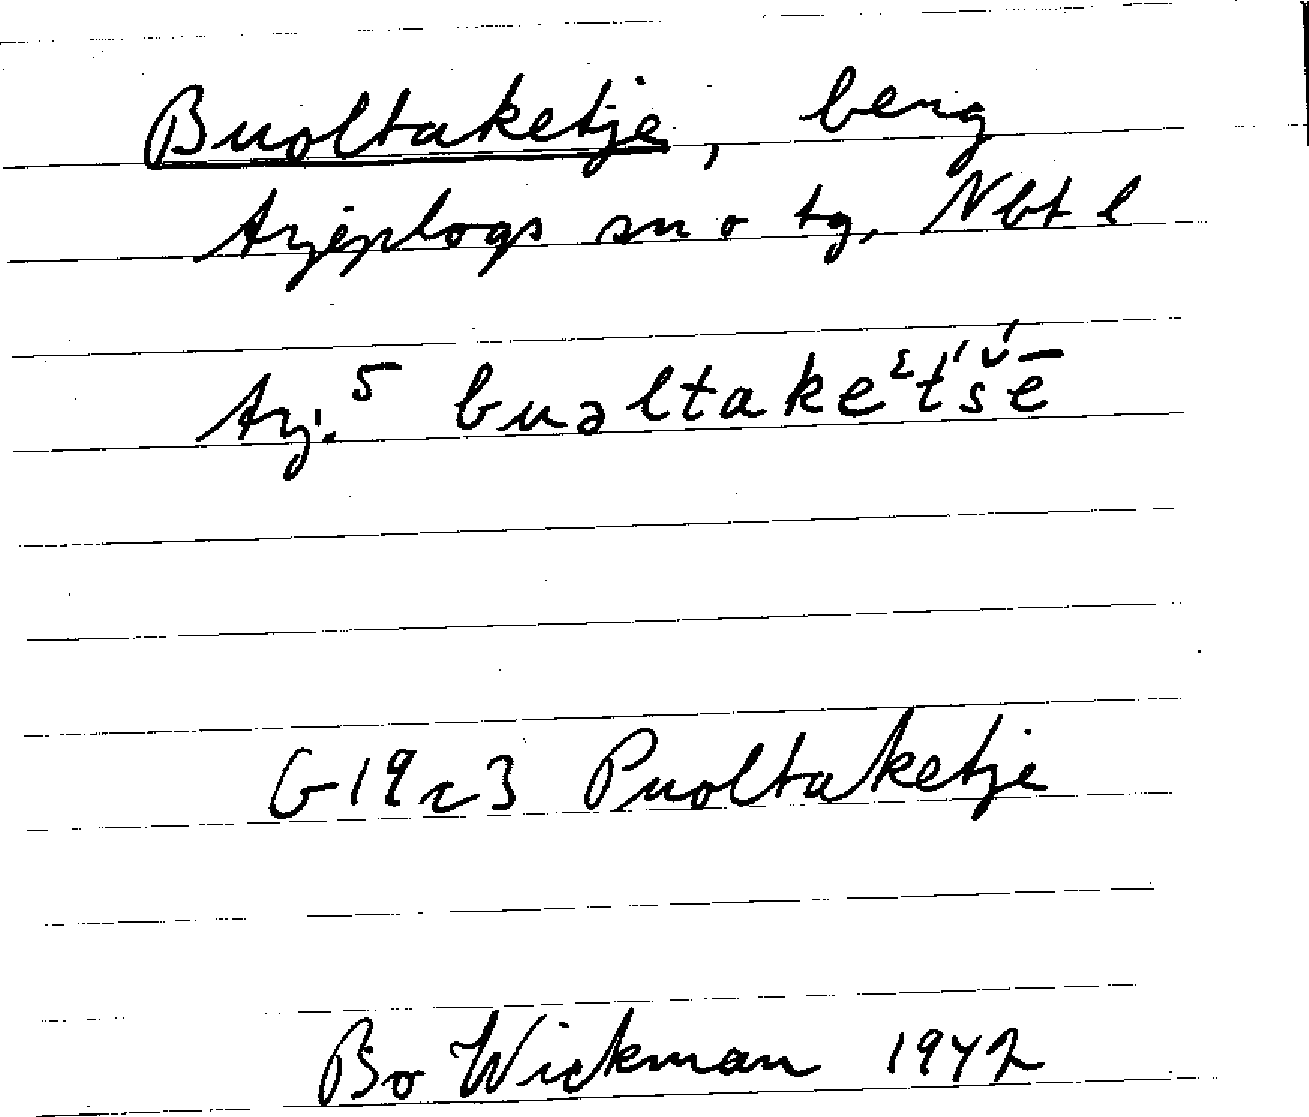 Buoltaketje, berg
Arjeplogs sn o tg, Nbt l
Arj.5 buəltakeᵋt́š́ē
G19c3 Puoltaketje
Bo Wickman 1942